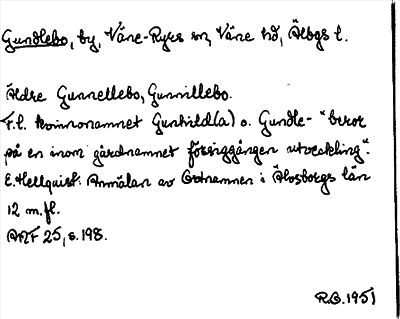 Gundlebo, by, Väne-Ryrs sn, Väne hd, Älvbgs l.
Äldre Gunnellebo, Gunnillebo.
F.l. kvinnonamnet Gunhild(a) o. Gundle- "beror
på en inom gårdnamnet försiggången utveckling".
E. Hellquist: Anmälan av Ortnamnen i Älvsborgs län
12 m.fl.
ANF 25, s. 198.
R.G. 1951